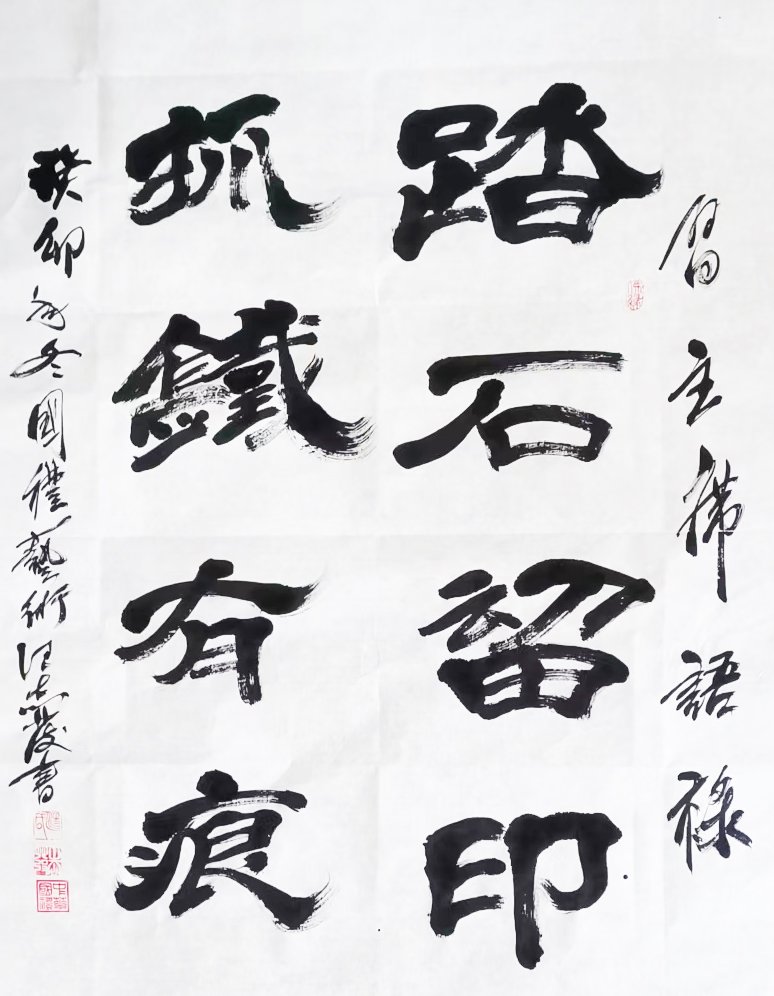 習主席語祿
踏石留印
抓鐵有痕
癸卯年冬國禮藝術汪志書